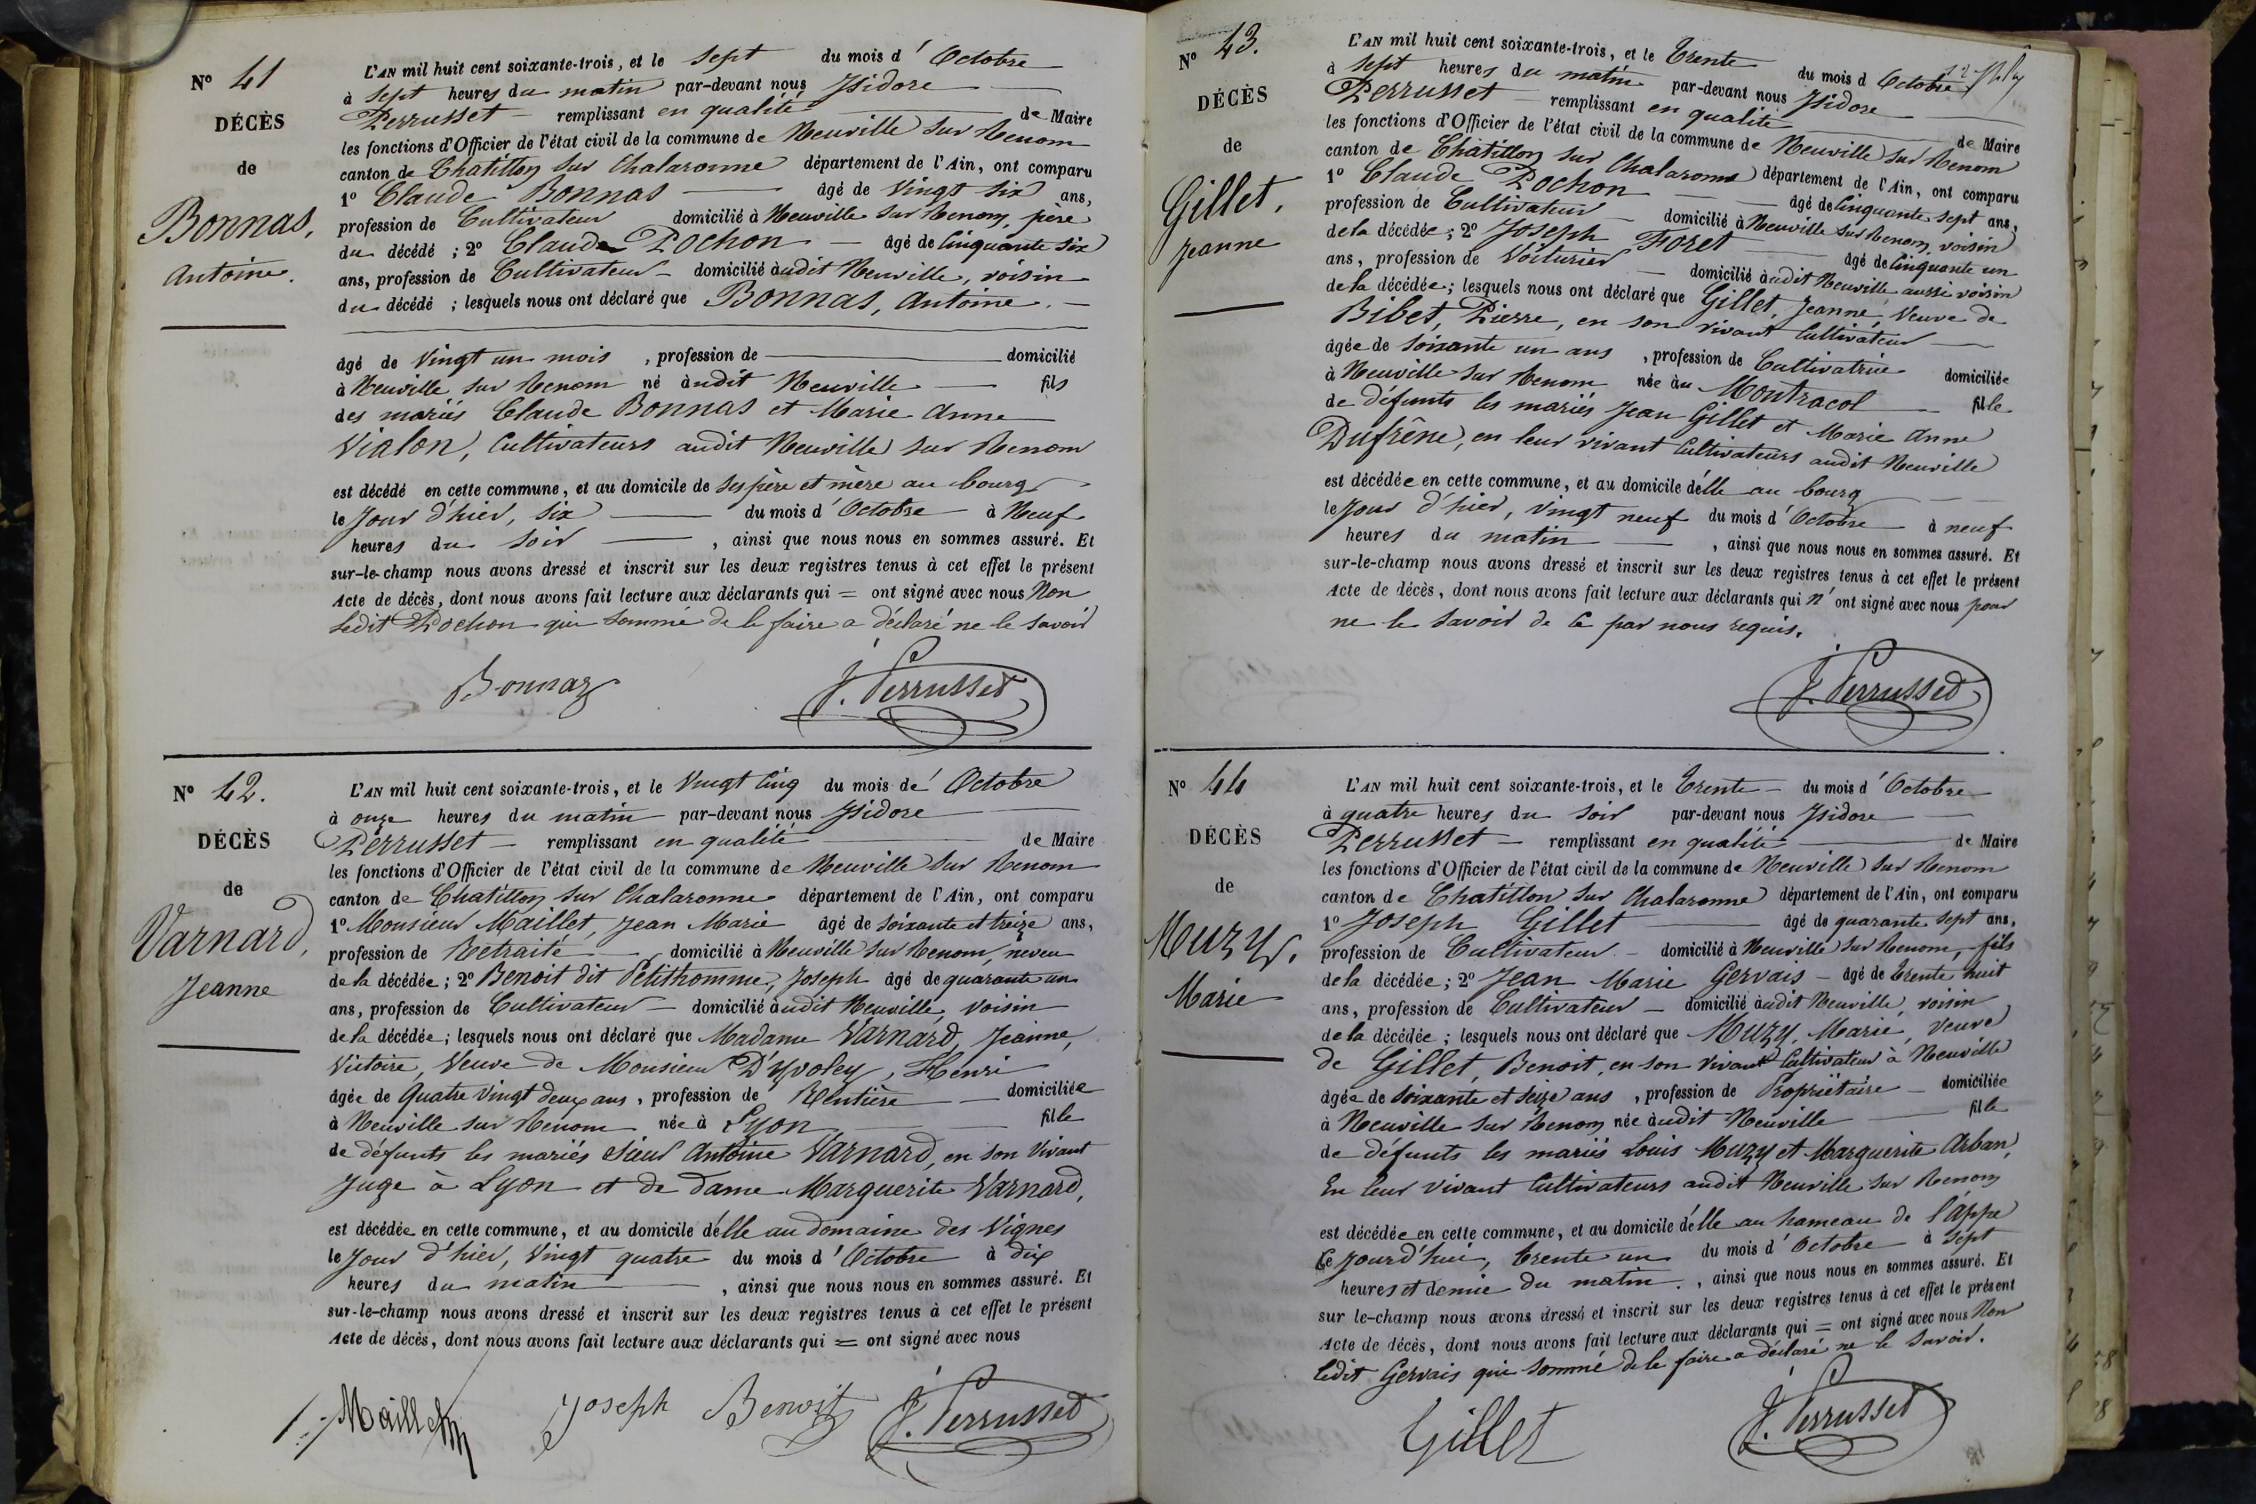 N° 41
DÉCÈS
de
Bonnas,
Antoine.
L'AN mil huit cent soixante-trois, et le sept du mois d'Octobre
à sept heures du matin par-devant nous Isidore
Perrusset remplissant en qualité de Maire
les fonctions d'Officier de l'état civil de la commune de Neuville sur Renom
canton de Chatillon sur Chalaronne département de l'Ain, ont comparu
1° Claude Bonnas âgé de vingt six ans,
profession de Cultivateur domicilié à Neuville sur Renom, père
du décédé ; 2° Claude Pochon âgé de Cinquante six
ans, profession de Cultivateur domicilié audit Neuville, voisin
du décédé ; lesquels nous ont déclaré que Bonnas, Antoine.
âgé de vingt un mois , profession de domicilié
à Neuville sur Renom né audit Neuville fils
des mariés Claude Bonnas et Marie Anne
Vialon, Cultivateurs audit Neuville sur Renom
est décédé en cette commune, et au domicile de ses père et mère au bourg
le Jour d'hier, six du mois d'Octobre à Neuf
heures du soir , ainsi que nous nous en sommes assuré. Et
sur-le-champ nous avons dressé et inscrit sur les deux registres tenus à cet effet le présent
Acte de décès, dont nous avons fait lecture aux déclarants qui = ont signé avec nous Non
ledit Pochon qui sommé de le faire a déclaré ne le savoir
Bonnaz J. Perrusset
N° 42.
DÉCÈS
de
Varnard,
Jeanne
L'AN mil huit cent soixante-trois, et le Vingt Cinq du mois de' Octobre
à onze heures du matin par-devant nous Isidore
Perrusset remplissant en qualité de Maire
les fonctions d'Officier de l'état civil de la commune de Neuville sur Renom
canton de Chatillon sur Chalaronne département de l'Ain, ont comparu
1° Monsieur Maillet, Jean Marie âgé de soixante et treize ans,
profession de Retraité domicilié à Neuville sur Renom, neveu
de la décédée ; 2° Benoit dit Petithomme, Joseph âgé de quarante un
ans, profession de Cultivateur domicilié audit Neuville, voisin
de la décédée ; lesquels nous ont déclaré que Madame Varnard, Jeanne,
Victoire, Veuve de Monsieur D'yvoley, Henri
âgée de Quatre vingt deux ans , profession de Rentière domiciliée
à Neuville sur Renom née à Lyon fille
de défunts les mariés sieur Antoine Varnard, en son Vivant
Juge à Lyon et de Dame Marguerite Varnard,
est décédée en cette commune, et au domicile d'elle au domaine des Vignes
le Jour d'hier, Vingt quatre du mois d'Octobre à dix
heures du matin , ainsi que nous nous en sommes assuré. Et
sur-le-champ nous avons dressé et inscrit sur les deux registres tenus à cet effet le présent
Acte de décès, dont nous avons fait lecture aux déclarants qui = ont signé avec nous
Maillet Joseph Benoit J. Perrusset
N° 43.
DÉCÈS
de
Gillet,
Jeanne
L'AN mil huit cent soixante-trois, et le Trente du mois d Octobre
à sept heures du matin par-devant nous Isidore
Perrusset remplissant en qualité de Maire
les fonctions d'Officier de l'état civil de la commune de Neuville sur Renom
canton de Chatillon sur Chalaronne département de l'Ain, ont comparu
1° Claude Pochon âgé de Cinquante sept ans,
profession de Cultivateur domicilié à Neuville sur Renom, voisin
de la décédée ; 2° Joseph Foret âgé de Cinquante un
ans, profession de Voiturier domicilié audit Neuville aussi voisin
de la décédée ; lesquels nous ont déclaré que Gillet, Jeanne, Veuve de
Bibet, Pierre, en son vivant Cultivateur
âgée de soixante un ans , profession de Cultivatrice domiciliée
à Neuville sur Renom née au Montracol fille
de défunts les mariés Jean Gillet et Marie Anne
Dufrêne, en leur vivant Cultivateurs audit Neuville
est décédée en cette commune, et au domicile d'elle au bourg
le Jour d'hier, vingt neuf du mois d'Octobre à neuf
heures du matin , ainsi que nous nous en sommes assuré. Et
sur-le-champ nous avons dressé et inscrit sur les deux registres tenus à cet effet le présent
Acte de décès, dont nous avons fait lecture aux déclarants qui n'ont signé avec nous pour
ne le savoir de ce par nous requis.
J. Perrusset
N° 44
DÉCÈS
de
Muzy,
Marie
L'AN mil huit cent soixante-trois, et le Trente du mois d'Octobre
à quatre heures du soir par-devant nous Isidore
Perrusset remplissant en qualité de Maire
les fonctions d'Officier de l'état civil de la commune de Neuville sur Renom
canton de Chatillon sur Chalaronne département de l'Ain, ont comparu
1° Joseph Gillet âgé de quarante sept ans,
profession de Cultivateur domicilié à Neuville sur Renom, fils
de la décédée ; 2° Jean Marie Gervais âgé de trente huit
ans, profession de Cultivateur domicilié audit Neuville, voisin
de la décédée ; lesquels nous ont déclaré que Muzy, Marie, Veuve
de Gillet, Benoit, en son vivant Cultivateur à Neuville
âgée de soixante et seize ans , profession de Propriétaire domiciliée
à Neuville sur Renom née audit Neuville fille
de défunts les mariés Louis Muzy et Marguerite Arban,
En leur vivant Cultivateurs audit Neuville sur Renom
est décédée en cette commune, et au domicile d'elle au hameau de l'Appe
Ce jourd'hui, trente un du mois d'Octobre à sept
heures et demie du matin. , ainsi que nous nous en sommes assuré. Et
sur le-champ nous avons dressé et inscrit sur les deux registres tenus à cet effet le présent
Acte de décès, dont nous avons fait lecture aux déclarants qui = ont signé avec nous Non
ledit Gervais qui sommé de le faire a déclaré ne le savoir.
Gillet J. Perrusset